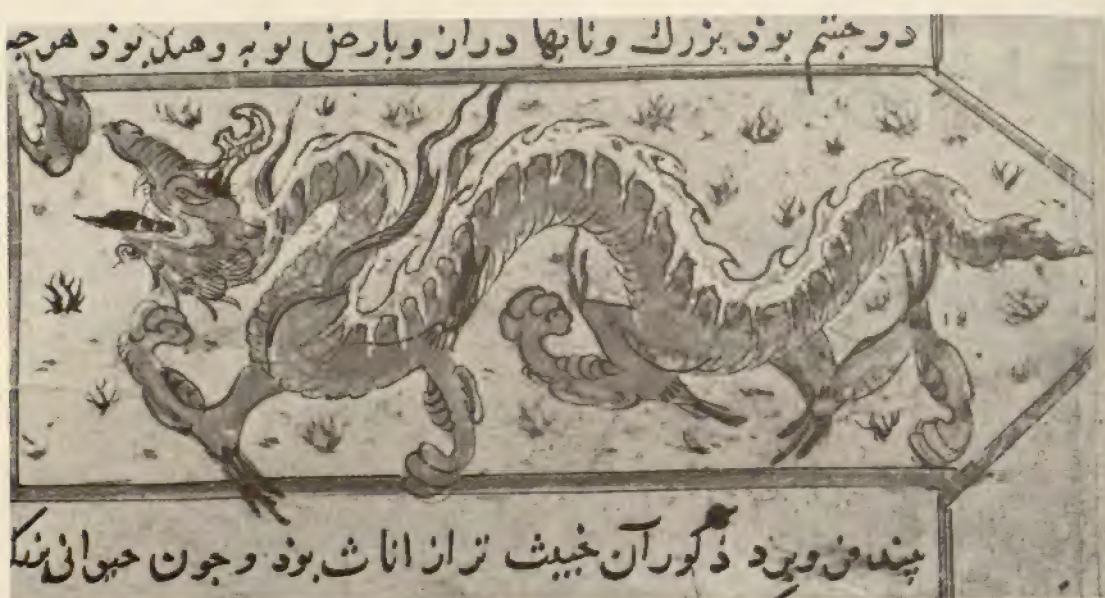 دو چشم بوذ بزرك ونابها دراز وبارض بوبه وهند بوذ هرجه
بیند فرو برد ذكور آن خبیث تر از اناث بوذ و جون حیوانی بزرك